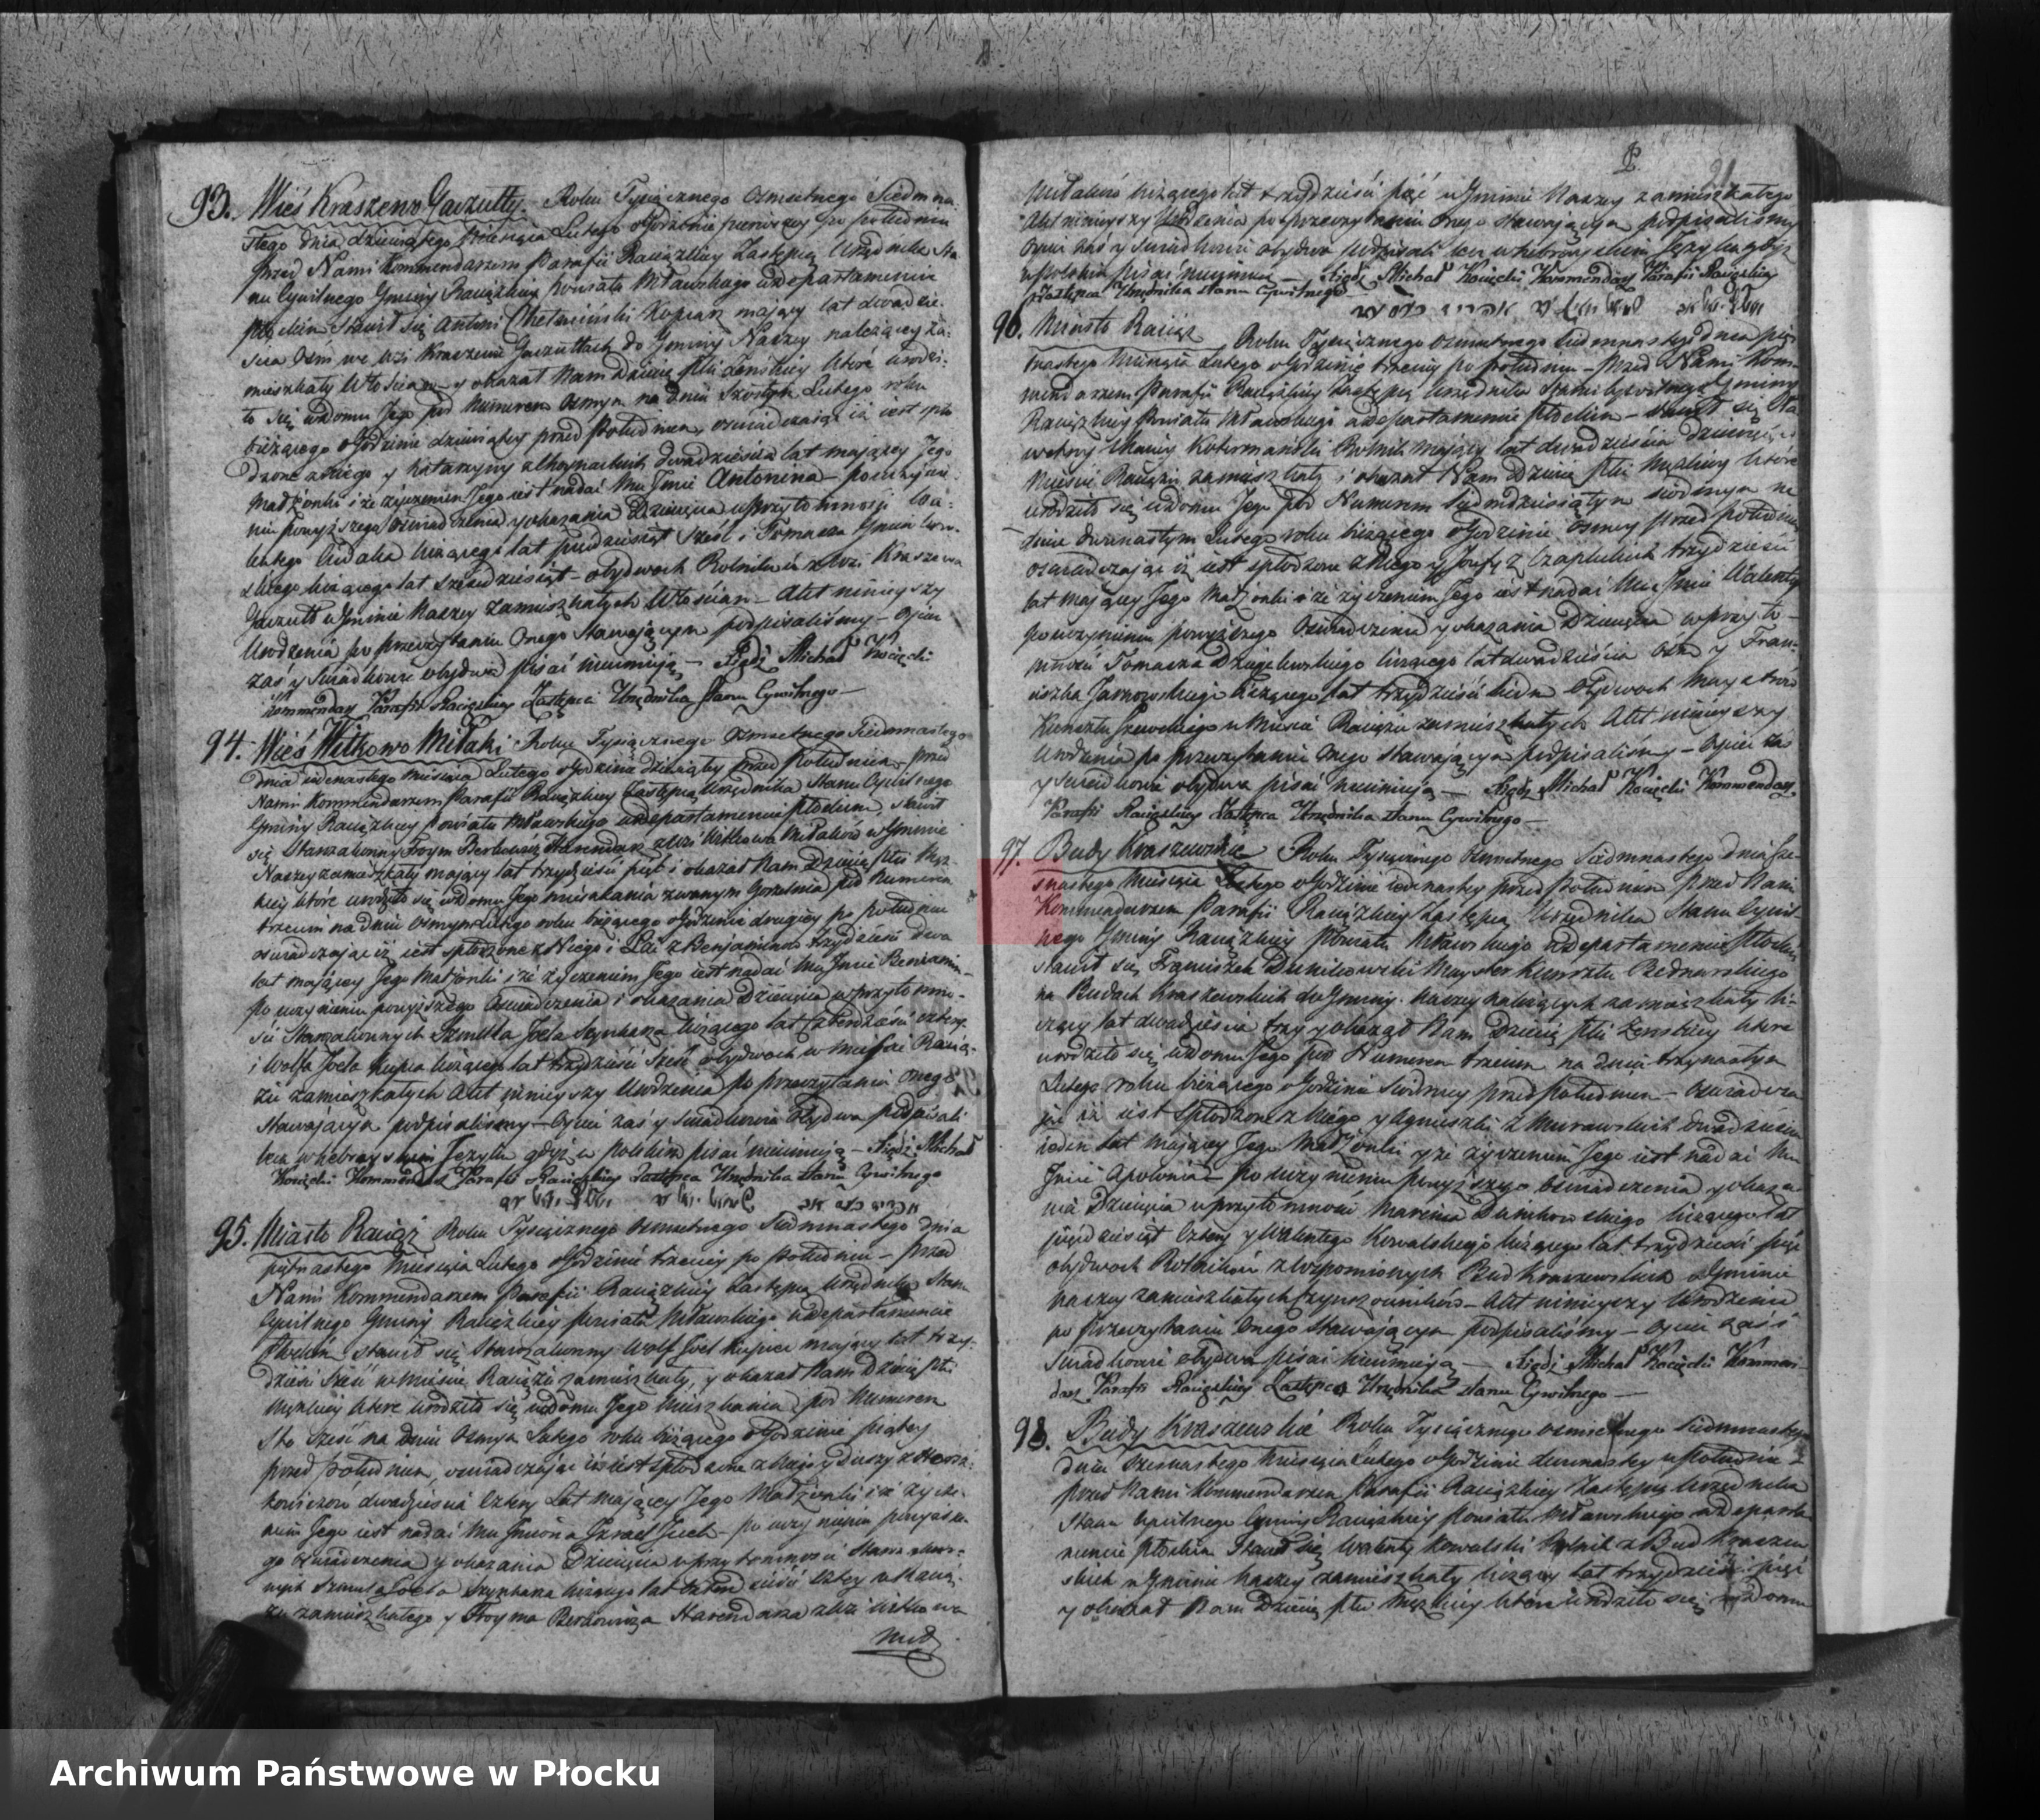 93. Wieś Kraszewo Gaczułty Roku Tysiącznego Osmsetnego Siedmna-
stego dnia dziewiątego Miesiąca Lutego o Godzinie pierwszey po południu
przed Nami Kommendarzem Parafii Raciązkiey Zastępcą Urzędnika Sta-
nu Cywilnego Gminy Raciązkiey Powiatu Mławskiego w Departamencie
Płockim stawił się Antoni Chełmiński mający lat dwadzie-
ścia Ośm we wsi Kraszewie Gaczułtach do Gminy Naszey należącey za-
mieszkały y okazał Nam Dziecię płci Żeńskiey które urodzi-
ło się w domu Jego pod Numerem Osmym na dniu Szóstym Lutego roku
bieżącego o Godzinie dziewiątey przed Południem, oświadczając iż jest spło-
dzone z Niego y Katarzyny dwadzieścia lat mającey Jego
Małżonki i że życzeniem Jego jest nadać Mu Imie Antonina po uczynie-
niu powyższego oświadczenia y okazania Dziecięcia w przytomności
liczącego lat pięćdziesiąt sześć i Tomasza
liczącego lat sześćdziesiąt obydwóch Rolników z wsi Kraszewa
Gaczułt w Gminie Naszey zamieszkałych Akt ninieyszy
Urodzenia po przeczytaniu Onego Stawającym podpisaliśmy Ojciec
zaś y świadkowie obydwa pisać nieumieją Xiądz Michał Kocięcki
Kommendarz Parafii Raciązkiey Zastępca Urzędnika Stanu Cywilnego
94. Wieś Witkowo Miłaki Roku Tysiącznego Osmsetnego Siedmnastego
dnia iedenastego Miesiąca Lutego o Godzinie dziewiątey przed Południem przed
Nami Kommendarzem Parafii Raciązkiey Zastępcą Urzędnika Stanu Cywilnego
Gminy Raciązkiey Powiatu Mławskiego w Departamencie Płockim, stawił
się Starozakonny Froym Berkowicz Harendarz z wsi Witkowa Miłaków w Gminie
Naszey zamieszkały mający lat trzydzieści pięć i okazał Nam Dziecię płci Męz-
kiey które urodziło się w domu Jego mieszkania zwanym Gorzelnia pod Numerem
trzecim na dniu Osmym Lutego roku bieżącego o Godzinie drugiey po południu
oświadczając iż jest spłodzone z Niego i z Benjaminów trzydzieści dwa
lat mającey Jego Małżonki i że życzeniem Jego jest nadać Mu Imie Beniamin
Po uczynieniu powyższego Oświadczenia i okazania Dziecięcia w przytomno-
ści Starozakonnych Szmula Joela Szynkarza liczącego lat Czterdzieści cztery
i Wolfa Joela Kupca liczącego lat trzydzieści Sześć obydwóch w Mieście Racią-
żu zamieszkałych Akt ninieyszy Urodzenia po przeczytaniu Onego
Stawającym podpisaliśmy Ojciec zaś y Świadkowie Obydwa podpisali
lecz w hebrayskim Języku gdyż w polskim pisać nieumieją Xiądz Michał
Kocięcki Kommendarz Parafii Raciązkiey Zastępca Urzędnika Stanu Cywilnego
95. Miasto Raciąż Roku Tysiącznego Osmsetnego Siedmnastego dnia
piętnastego Miesiąca Lutego o Godzinie trzeciey po południu przed
Nami Kommendarzem Parafii Raciązkiey Zastępcą Urzędnika Stanu
Cywilnego Gminy Raciązkiey Powiatu Mławskiego w Departamencie
Płockim stawił się Starozakonny Wolf Joel Kupiec mający lat trzy-
dzieści Sześć w Mieście Raciążu zamieszkały, y okazał Nam Dziecię płci
Męzkiey które urodziło się w domu Jego Mieszkania pod Numerem
Sto Sześć na dniu Osmym Lutego roku bieżącego o Godzinie piątey
przed południem, oświadczając iż jest spłodzone z Niego y
dwadzieścia cztery Lat mającey Jego Małżonki i że życze-
niem Jego jest nadać Mu Imiona Izrael po uczynieniu powyższe-
go Oświadczenia y okazania Dziecięcia w przytomności Starozakon-
nych Szmula Joela Szynkarza liczącego lat czterdzieści cztery w Racią-
żu zamieszkałego y Froyma Berkowicza Harendarza z wsi Witkowa
Miła
Miłaków liczącego lat trzydzieści pięć w Gminie Naszey zamieszkałego
Akt ninieyszy Urodzenia po przeczytaniu Onego Stawającym podpisaliśmy
Ojciec zaś y Świadkowie obydwa podpisali lecz w hebrayskim Języku gdyż
w polskim pisać nieumieją Xiądz Michał Kocięcki Kommendarz Parafii Raciązkiey
Zastępca Urzędnika Stanu Cywilnego
96. Miasto Raciąż Roku Tysiącznego Osmsetnego Siedmnastego dnia pięt-
nastego Miesiąca Lutego o Godzinie trzeciey po południu przed Nami Kom-
mendarzem Parafii Raciązkiey Zastępcą Urzędnika Stanu Cywilnego Gminy
Raciązkiey Powiatu Mławskiego w Departamencie Płockim stawił się Sła-
wetny Rolnik mający lat dwadzieścia dziewięć w
Mieście Raciążu zamieszkały i okazał Nam Dziecię płci Męzkiey które
urodziło się w domu Jego pod Numerem Siedmdziesiątym siódmym na
dniu dwunastym Lutego roku bieżącego o Godzinie Osmey przed południem
oświadczając iż jest spłodzone z Niego y Józefy z Czaplickich trzydzieści
lat mającey Jego Małżonki i że życzeniem Jego jest nadać Mu Imie Walenty
po uczynieniu powyższego Oświadczenia y okazania Dziecięcia w przyto-
mności Tomasza liczącego lat dwadzieścia Ośm y Fran-
ciszka liczącego lat trzydzieści siedm Obydwóch Maystrów
Kunsztu Szewckiego w Mieście Raciążu zamieszkałych Akt ninieyszy
Urodzenia po przeczytaniu Onego Stawającym podpisaliśmy Ojciec zaś
y Świadkowie obydwa pisać nieumieją Xiądz Michał Kocięcki Kommendarz
Parafii Raciązkiey Zastępca Urzędnika Stanu Cywilnego
97. Budy Kraszewskie Roku Tysiącznego Osmsetnego Siedmnastego dnia sze-
snastego Miesiąca Lutego o Godzinie iedenastey przed Południem przed Nami
Kommendarzem Parafii Raciązkiey Zastępcą Urzędnika Stanu Cywil-
nego Gminy Raciązkiey Powiatu Mławskiego w Departamencie Płockim
stawił się Franciszek Dunikowski Mayster Kunsztu Bednarskiego
na Budach Kraszewskich do Gminy Naszey należących zamieszkały li-
czący lat dwadzieścia trzy y okazał Nam Dziecię płci Żenskiey które
urodziło się w domu Jego pod Numerem trzecim na dniu trzynastym
Lutego roku bieżącego o Godzinie Siódmey przed południem Oświadcza-
jąc iż jest spłodzone z Niego y Agnieszki z Murawskich dwadzieścia
jeden lat mającey Jego Małżonki y że życzeniem Jego jest nadać Mu
Imie Apolonia po uczynieniu powyższego Oświadczenia y okaza-
nia Dziecięcia w przytomności Marcina Dunikowskiego liczącego lat
pięćdziesiąt Cztery y Walentego Kowalskiego liczącego lat trzydzieści pięć
obydwóch Rolników z wspomnionych Bud Kraszewskich w Gminie
Naszey zamieszkałych Czynszowników Akt ninieyszy Urodzenia
po przeczytaniu Onego Stawającym podpisaliśmy Ojciec zaś i
Świadkowie obydwa pisać nieumieją Xiądz Michał Kocięcki Kommen-
darz Parafii Raciązkiey Zastępca Urzędnika Stanu Cywilnego
98. Budy Kraszewskie Roku Tysiącznego Osmsetnego Siedmnastego
dnia Szesnastego Miesiąca Lutego o Godzinie dwunastey w południe
przed Nami Kommendarzem Parafii Raciązkiey Zastępcą Urzędnika
Stanu Cywilnego Gminy Raciązkiey Powiatu Mławskiego w Departa-
mencie Płockim Stawił się Walenty Kowalski Rolnik z Bud Kraszew-
skich w Gminie Naszey zamieszkały liczący lat trzydzieści pięć
y okazał Nam Dziecię płci Męzkiey które urodziło się w domu
Archiwum Państwowe w Płocku